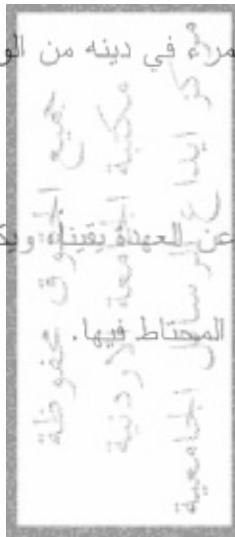 مرء في دينه من الو
عن العهدة بيقين، ويك
المحتاط فيها.
جميع الحقوق محفوظة
مكتبة الجامعة الاردنية
مركز ايداع الرسائل الجامعية